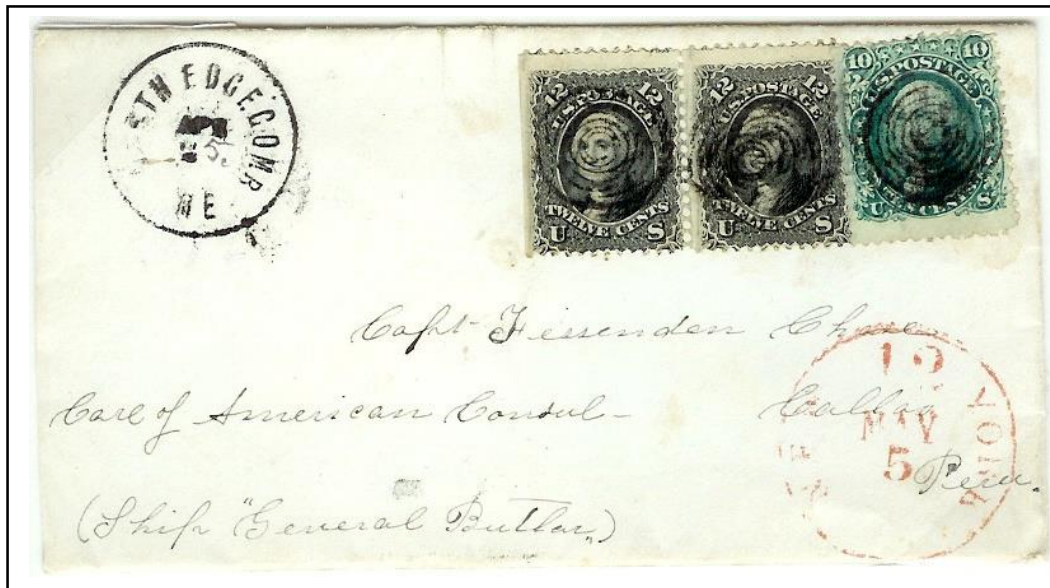 EDGECOMB
5.
ME
12 12
U.S. POSTAGE
TWELVE CENTS
U S
12 12
U.S. POSTAGE
TWELVE CENTS
U S
10 10
U.S. POSTAGE
TEN CENTS
U S
Capt Fessenden Chase
Care of American Consul - Callao
Peru.
(Ship "General Butler")
12
MAY
5
YORK